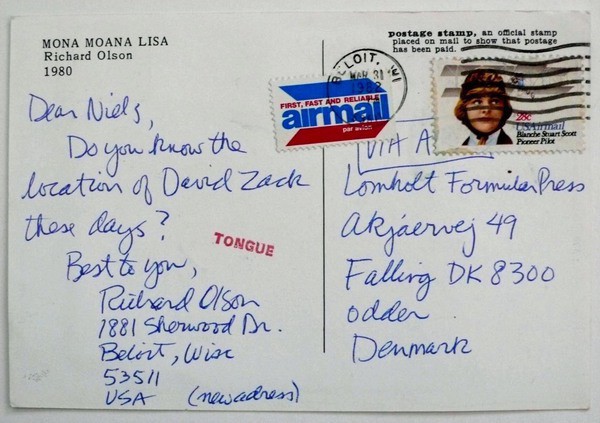 MONA MOANA LISA
Richard Olson
1980
postage stamp, an official stamp
placed on mail to show that postage
has been paid.
BELOIT, WI
MAR 31
1982
FIRST, FAST AND RELIABLE
airmail
par avion
28c
USAirmail
Blanche Stuart Scott
Pioneer Pilot
Dear Niels,
Do you know the
location of David Zack
these days?
TONGUE
Best to you,
Richard Olson
1881 Sherwood Dr.
Beloit, Wisc
53511
USA (new adress)
VIA
Lomholt Formular Press
Akjaervej 49
Falling DK 8300
odder
Denmark